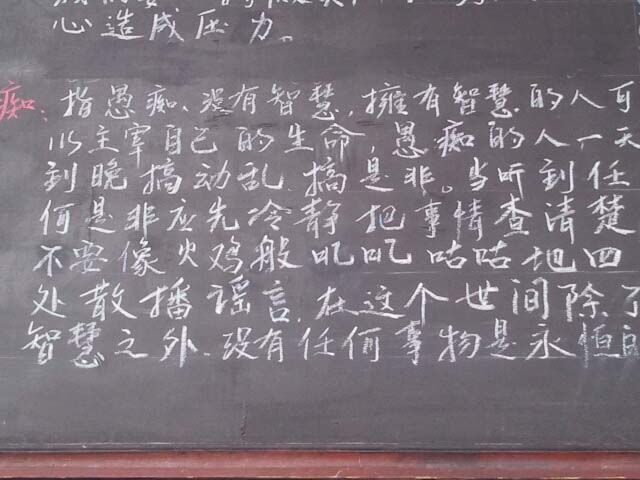 心造成压力。
痴:指愚痴、没有智慧,擁有智慧的人可
以主宰自己的生命,愚痴的人一天
到晚搞动乱、搞是非。当听到任
何是非应先冷静把事情查清楚
不安像火鸡般叽叽咕咕地四
处散播谣言.在这个世间除了
智慧之外.没有任何事物是永恒的